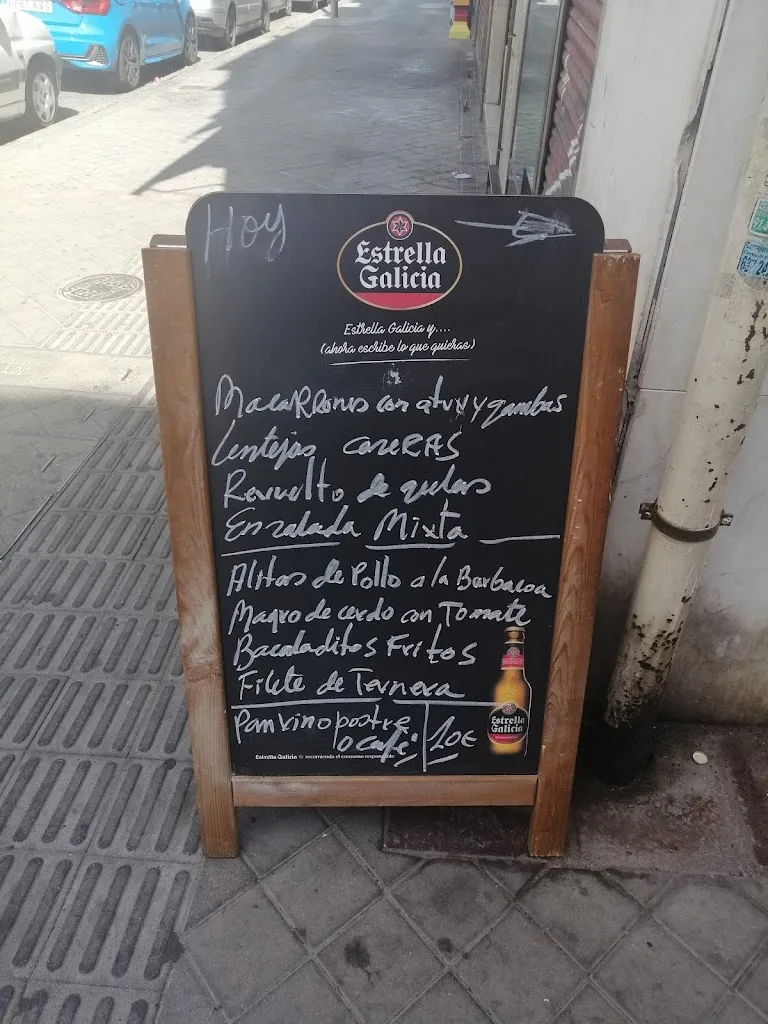 Hoy
Estrella
Galicia
Estrella Galicia y....
(ahora escribe lo que quieras)
Macarrones con atun y gambas
Lentejas caseras
Revuelto de gulas
Ensalada Mixta
Alitas de Pollo a la Barbacoa
Magro de cerdo con Tomate
Bacaladitos Fritos
Filete de Ternera
Pan vino postre
o café
10€
Estrella
Galicia
Estrella Galicia recomienda el consumo responsable